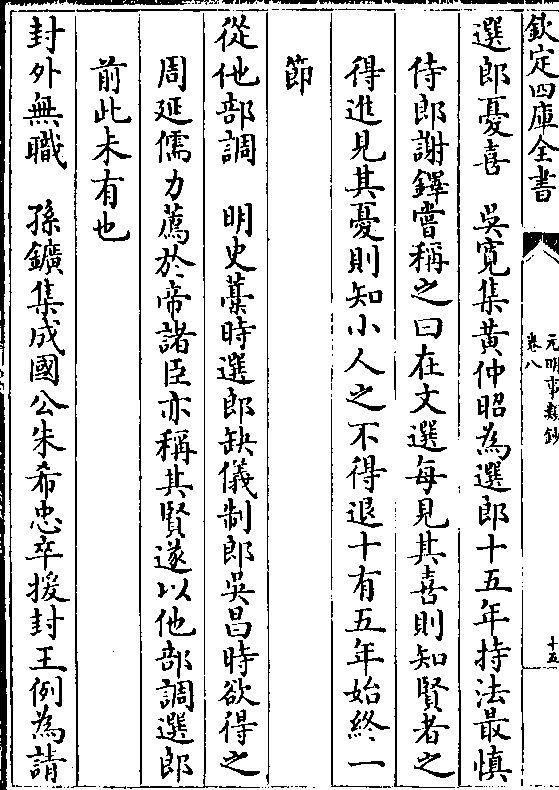 欽定四庫全書
元明事類鈔
卷八
十五
選郎憂喜　吳寬集黃仲昭為選郎十五年持法最慎
侍郎謝鐸嘗稱之曰在文選每見其喜則知賢者之
得進見其憂則知小人之不得退十有五年始終一
節
從他部調　明史藁時選郎缺儀制郎吳昌時欲得之
周延儒力薦於帝諸臣亦稱其賢遂以他部調選郎
前此未有也
封外無職　孫鑛集成國公朱希忠卒援封王例為請